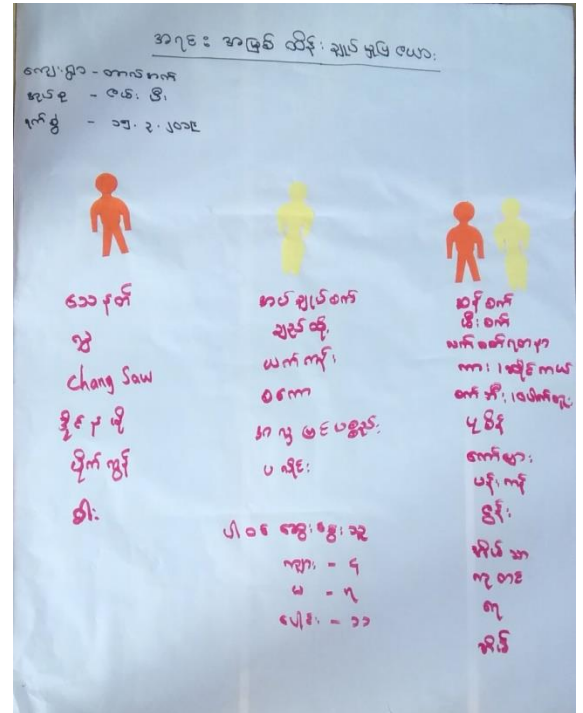 အရင်းအမြစ် ထိန်းချုပ်မှုပြ ဇယား
ကျေးရွာ -
အုပ်စု -
ရက်စွဲ - ၁၅.၃.၂၀၁၉
သေနတ်
လှွ
Chang Saw
ပိုက်ကွန်
ဓါး
အပ်ချုပ်စက်
ချည်ထိုး
ယက်ကန်း
စကော
အလှပြင်ပစ္စည်း
ပလိုင်း
ပါဝင် ဆွေးနွေးသူ
ကျား - ၄
မ - ၇
ပေါင်း - ၁၁
ဆန်စက်
ဆီးစက်
ကား၊ ဆိုင်ကယ်
စက်ဘီး၊ ပေါက်တူး
ပုဆိန်
ပန်းကန်
ဇွန်း
အိမ်သာ
ကုတင်
တူ
အိမ်